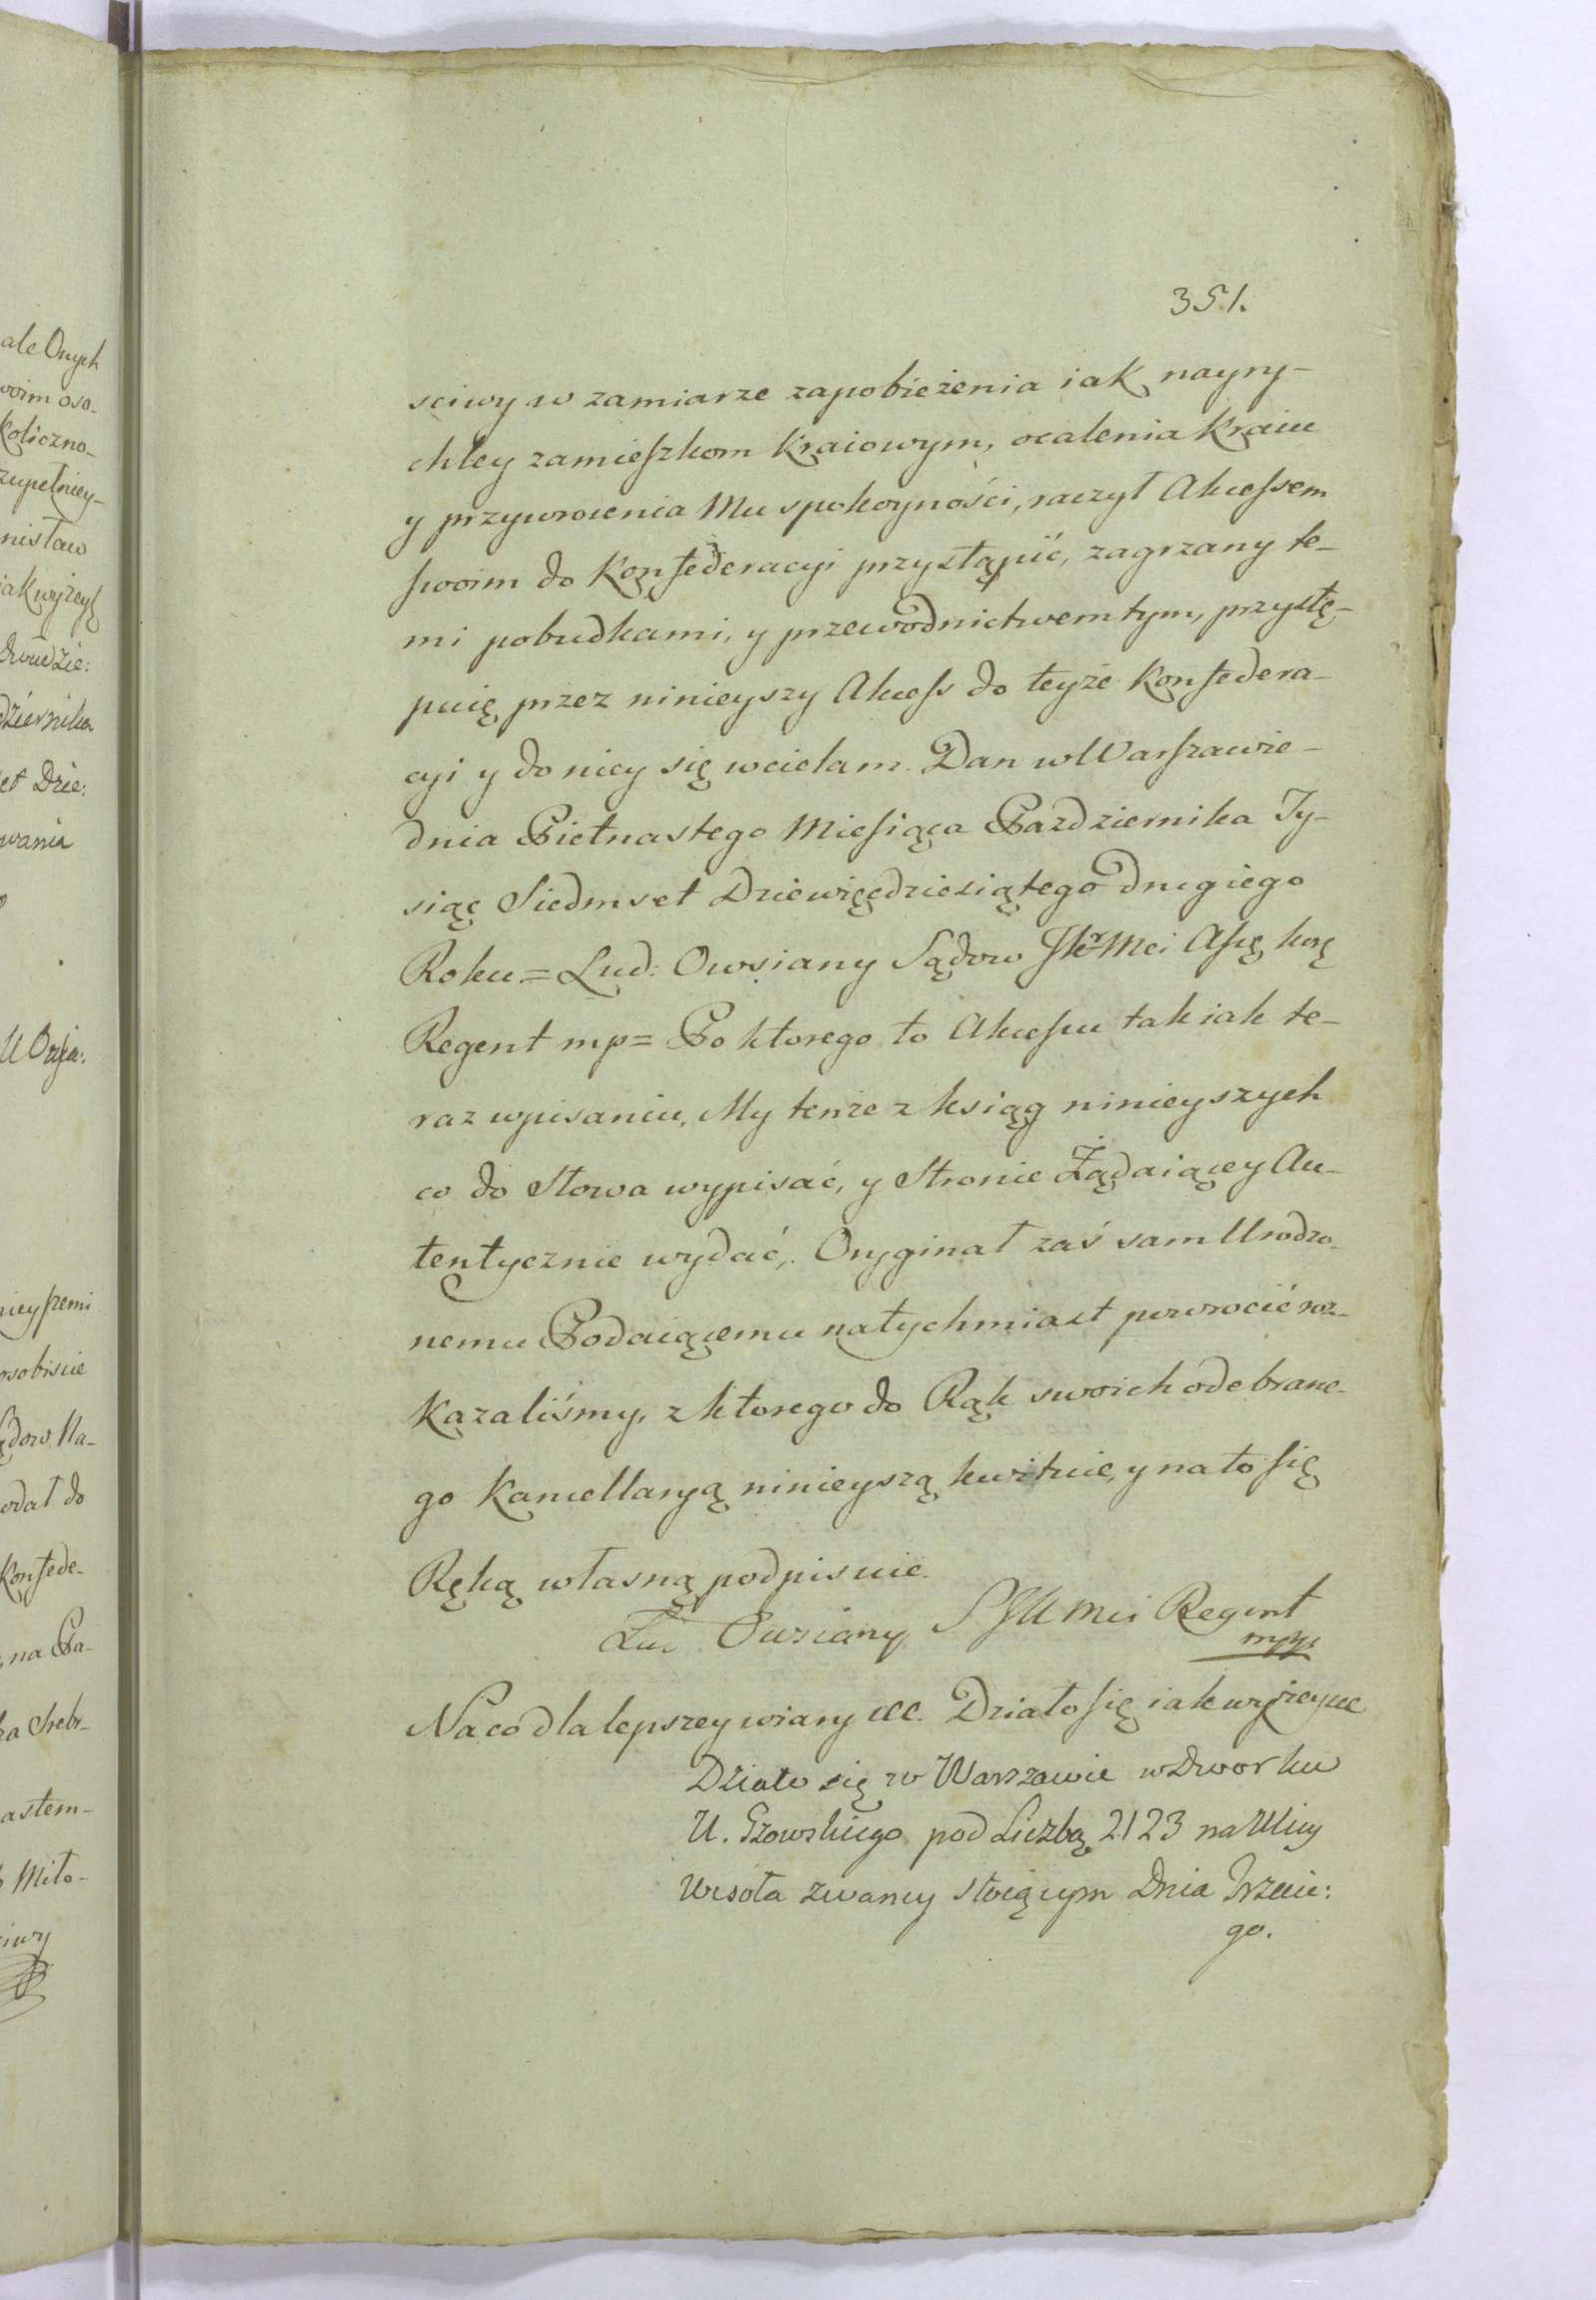 351.
sciwy w zamiarze zapobieżenia iak nayry-
chley zamieszkom Kraiowym, ocalenia Kraiu
y przywrocenia Mu spokoyności, raczył Akcessem
swoim do Konfederacyi przystąpić, zagrzany te-
mi pobudkami, y przewodnictwem tym, przystę-
puię przez ninieyszy Akcess do teyże Konfedera-
cyi y do niey się wcielam. Dan w Warszawie
dnia Pietnastego Miesiąca Pazdziernika Ty-
siąc Siedmset Dziewięćdziesiątego Drugiego
Roku = Lud: Owsiany Sądow JKr Mci Assę korę
Regent mp = Po ktorego to Akcessu tak iak te-
raz wpisaniu, My tenże z ksiąg ninieyszych
co do Słowa wypisać, y Stronie Żądaiącey Au-
tentycznie wydać, Oryginał zaś sam Urodzo-
nemu Podaiącemu natychmiast powrocić roz-
kazaliśmy, z ktorego do Rąk swoich odebrane-
go Kancellaryą ninieyszą kwituie, y na to się
Ręką własną podpisuie.
Lud Owsiany S JK Mci Regent
mpp
Na co dla lepszey wiary &c. Działo się iak wyżey &c
Działo się w Warszawie w Dworku
U. Gzowskiego pod Liczbą 2123 na Ulicy
Wesoła zwaney stoiącym Dnia Trzecie:
go.
ale Onych
woim oso-
koliczno-
zupełniey-
nisław
iak wyżey
dwudzie:
dziernika
et Dzie:
wania
nieyszemi
osobiscie
ądow Na-
odał do
Konfede-
na Pa-
ka Srebr-
astem-
Miło-
ciwy